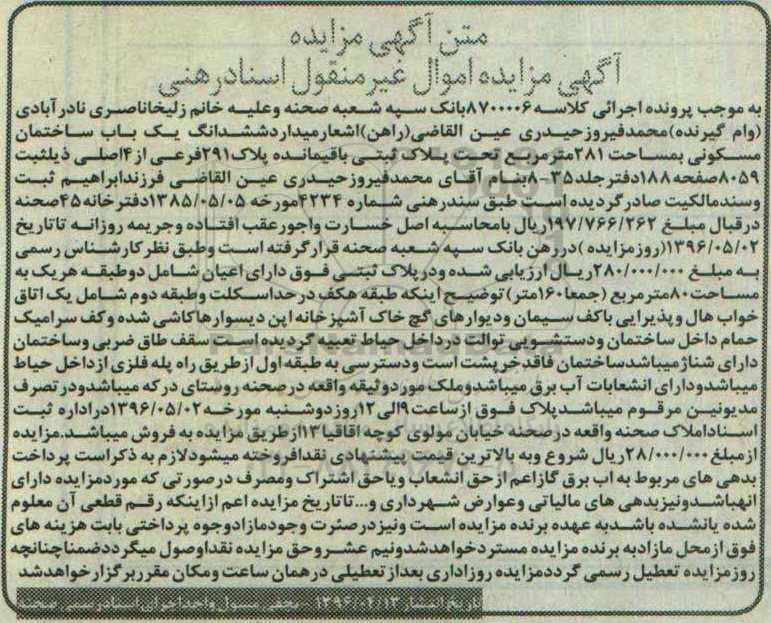 متن آگهی مزایده
آگهی مزایده اموال غیرمنقول اسناد رهنی
به موجب پرونده اجرائی کلاسه ۸۷۰۰۰۰۶ بانک سپه شعبه صحنه وعلیه خانم زلیخاناصری نادرآبادی
(وام گیرنده)محمدفیروزحیدری عین القاضی(راهن)اشعارمیداردششدانگ یک باب ساختمان
مسکونی بمساحت ۲۸۱مترمربع تحت پلاک ثبتی باقیمانده پلاک۲۹۱فرعی از۴اصلی ذیلثبت
۸۰۵۹صفحه۱۸۸دفترجلد۳۵-۸بنام آقای محمدفیروزحیدری عین القاضی فرزندابراهیم ثبت
وسندمالکیت صادرگردیده است طبق سندرهنی شماره ۴۲۳۴مورخه ۱۳۸۵/۰۵/۰۵دفترخانه۴۵صحنه
درقبال مبلغ ۱۹۷/۷۶۶/۲۶۲ریال بامحاسبه اصل خسارت واجورعقب افتاده وجریمه روزانه تاتاریخ
۱۳۹۶/۰۵/۰۲(روزمزایده )دررهن بانک سپه شعبه صحنه قرارگرفته است وطبق نظرکارشناس رسمی
به مبلغ ۲۸۰/۰۰۰/۰۰۰ریال ارزیابی شده ودرپلاک ثبتی فوق دارای اعیان شامل دوطبقه هریک به
مساحت۸۰مترمربع (جمعا۱۶۰متر) توضیح اینکه طبقه هکف درحداسکلت وطبقه دوم شامل یک اتاق
خواب هال وپذیرایی باکف سیمان ودیوارهای گچ خاک آشپزخانه اپن دیسوارهاکاشی شده وکف سرامیک
حمام داخل ساختمان ودستشویی توالت درداخل حیاط تعبیه گردیده است سقف طاق ضربی وساختمان
دارای شناژمیباشدساختمان فاقدخرپشت است ودسترسی به طبقه اول ازطریق راه پله فلزی ازداخل حیاط
میباشدودارای انشعابات آب برق میباشدوملک موردوثیقه واقعه درصحنه روستای درکه میباشدودرتصرف
مدیونین مرقوم میباشدپلاک فوق ازساعت۹الی۱۲روزدوشنبه مورخه۱۳۹۶/۰۵/۰۲دراداره ثبت
اسناداملاک صحنه واقعه درصحنه خیابان مولوی کوچه اقاقیا۱۳ازطریق مزایده به فروش میباشد.مزایده
ازمبلغ۲۸/۰۰۰/۰۰۰ریال شروع وبه بالاترین قیمت پیشنهادی نقدافروخته میشودلازم به ذکراست پرداخت
بدهی های مربوط به اب برق گازاعم ازحق انشعاب ویاحق اشتراک ومصرف درصورتی که موردمزایده دارای
انهاباشدونیزبدهی های مالیاتی وعوارض شهرداری و...تاتاریخ مزایده اعم ازاینکه رقم قطعی آن معلوم
شده یانشده باشدبه عهده برنده مزایده است ونیزدرصئرت وجودمازادوجوه پرداختی بابت هزینه های
فوق ازمحل مازادبه برنده مزایده مستردخواهدشدونیم عشروحق مزایده نقداوصول میگرددضمناچنانچه
روزمزایده تعطیل رسمی گرددمزایده روزاداری بعدازتعطیلی درهمان ساعت ومکان مقرربرگزارخواهدشد
تاریخ انتشار ۱۳۹۶/۰۴/۱۳ - نجفی مسول واحداجرای اسنادرسمی صحنه